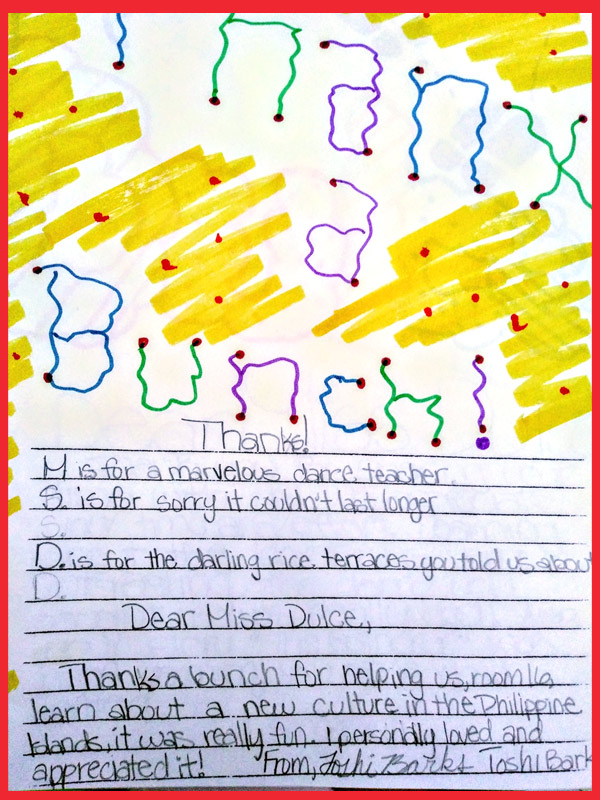 Thanx
a
Bunch!
Thanks!
M is for a marvelous dance teacher.
S. is for sorry it couldn't last longer
S.
D. is for the darling rice terraces you told us about
D.
Dear Miss Dulce,
Thanks a bunch for helping us, room 16,
learn about a new culture in the Philippine
Islands, it was really fun. I personally loved and
appreciated it! From, Toshi Barks Toshi Bark